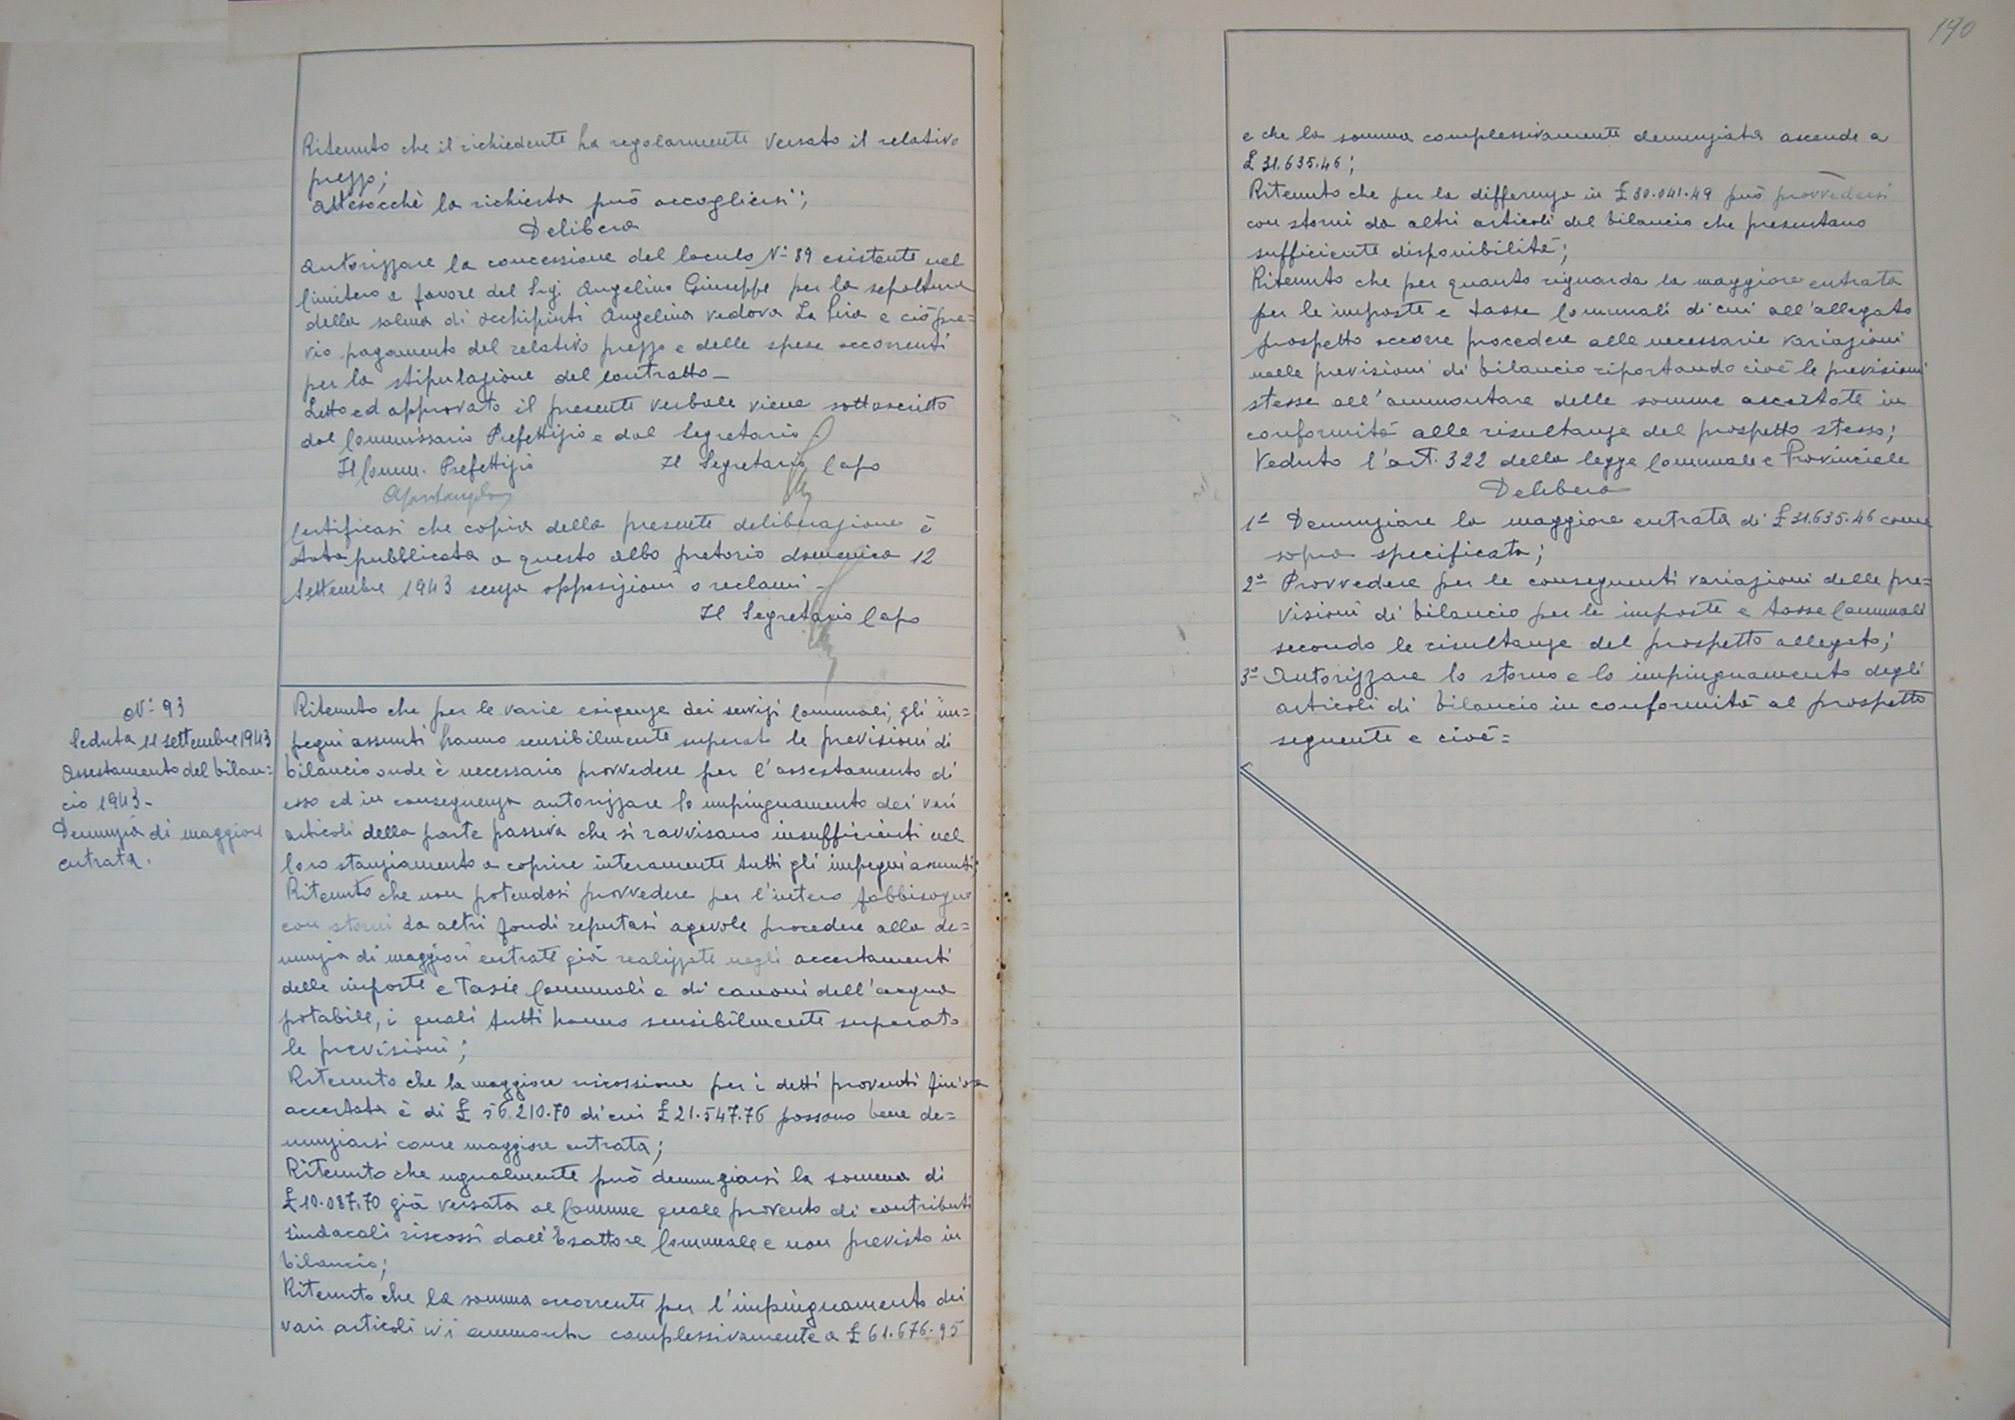 Ritenuto che il richiedente ha regolarmente versato il relativo
prezzo;
attesocchè la richiesta può accogliersi;
Delibera
autorizzare la concessione del loculo Nº 39 esistente nel
Cimitero a favore del Sig. Angelino Giuseppe per la sepoltura
della salma di Occhipinti Angelina vedova La Pira e ciò pre=
vio pagamento del relativo prezzo e delle spese occorrenti
per la stipulazione del contratto_
Letto ed approvato il presente verbale viene sottoscritto
dal Commissario Prefettizio e dal Segretario.
Il Comm. Prefettizio Il Segretario Capo
Certificasi che copia della presente deliberazione è
stata pubblicata a questo albo pretorio domenica 12
Settembre 1943 senza opposizioni o reclami_
Il Segretario Capo
Nº 93
Seduta 11 settembre 1943
Assestamento del bilan=
cio 1943-
Denunzia di maggiore
entrata.
Ritenuto che per le varie esigenze dei servizi Comunali, gli im=
pegni assunti hanno sensibilmente superat le previsioni di
bilancio onde è necessario provvedere per l'assestamento di
esso ed in conseguenza autorizzare lo impinguamento dei vari
articoli della parte passiva che si ravvisano insufficienti nel
loro stanziamento a coprire interamente tutti gli impegni assunti;
Ritenuto che non potendosi provvedere per l'intero fabbisogno
con storni da altri fondi reputasi agevole procedere alla de=
nunzia di maggiori entrate già realizzate negli accertamenti
delle imposte e Tasse Comunali e di canoni dell'acqua
potabile, i quali tutti hanno sensibilmente superato
le previsioni;
Ritenuto che la maggiore riscossione per i detti proventi fin'ora
accertata è di £ 56.210.70 di cui £ 21.547.76 possono bene de=
nunziarsi come maggiore entrata;
Ritenuto che ugualmente può denunziarsi la somma di
£ 10.087.70 già versata al Comune quale provento di contributi
sindacali riscossi dall'Esattore Comunale e non previsto in
bilancio;
Ritenuto che la somma occorrente per l'impinguamento dei
vari articoli ivi ammonta complessivamente a £ 61.676.95
190
e che la somma complessivamente denunziata ascende a
£ 31.635.46;
Ritenuto che per la differenza in £ 30.041.49 può provvedersi
con storni da altri articoli del bilancio che presentano
sufficiente disponibilità;
Ritenuto che per quanto riguarda la maggiore entrata
per le imposte e tasse Comunali di cui all'allegato
prospetto occorre procedere alle necessarie variazioni
nelle previsioni di bilancio riportando cioè le previsioni
stesse all'ammontare delle somme accertate in
conformità alle risultanze del prospetto stesso;
Veduto l'art. 322 della legge Comunale e Provinciale
Delibera
1º Denunziare la maggiore entrata di £ 31.635.46 come
sopra specificata;
2º Provvedere per le conseguenti variazioni delle pre=
visioni di bilancio per le imposte e tasse Comunali
secondo le risultanze del prospetto allegato;
3º Autorizzare lo storno e lo impinguamento degli
articoli di bilancio in conformità al prospetto
seguente e cioè=